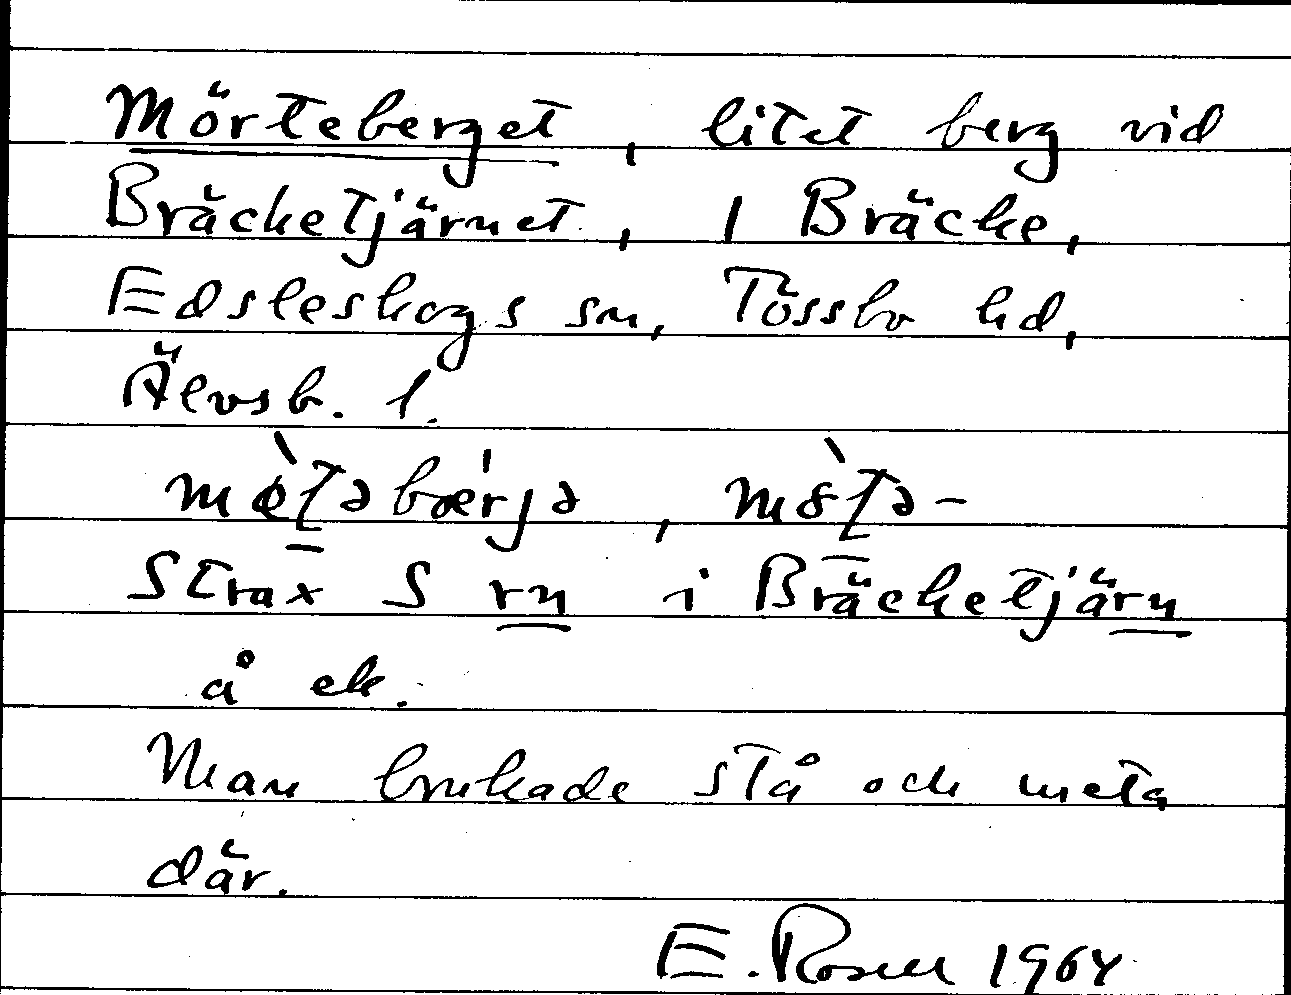 Mörteberget, litet berg vid
Bräcketjärnet, 1 Bräcke,
Edsleskogs sn, Tössbo hd,
Älvsb. l.
mø̀ʈəbæ̀rjə, mòʈə-
Strax S rn i Bräcketjärn
å ek.
Man brukade stå och meta
där.
E. Rosell 1964